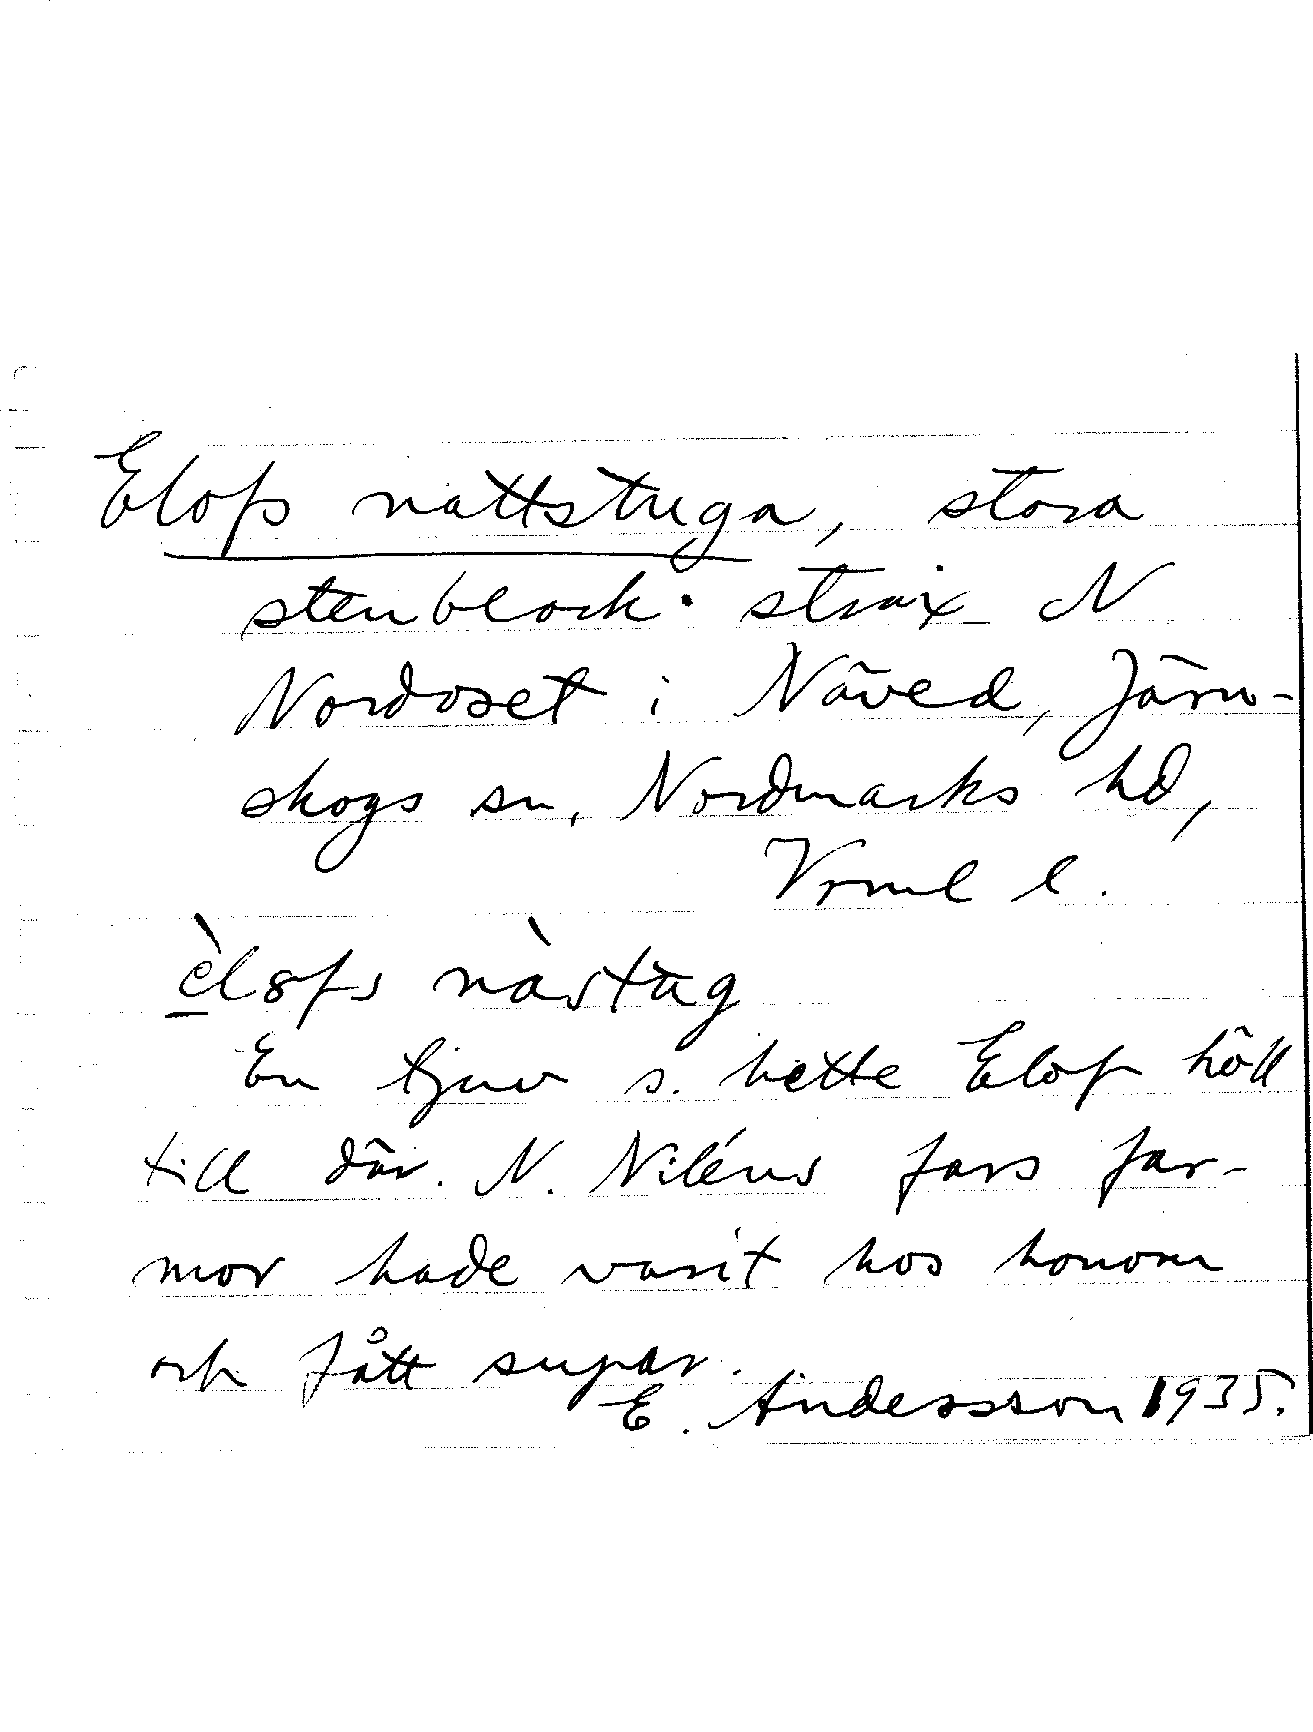 Elofs nattstuga, stora
stenblock strax N
Nordoset i Näved, Järn-
skogs sn, Nordmarks hd,
Vrml l.
èlofs nàstug
En tjuv s. hette Elof höll
till där. N. Niléns fars far-
mor hade varit hos honom
och fått supar.
E. Andersson 1935.